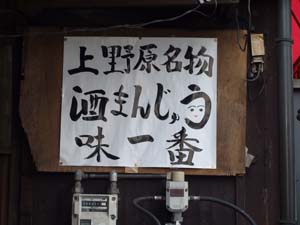 上野原名物
酒まんじゅう
味一番